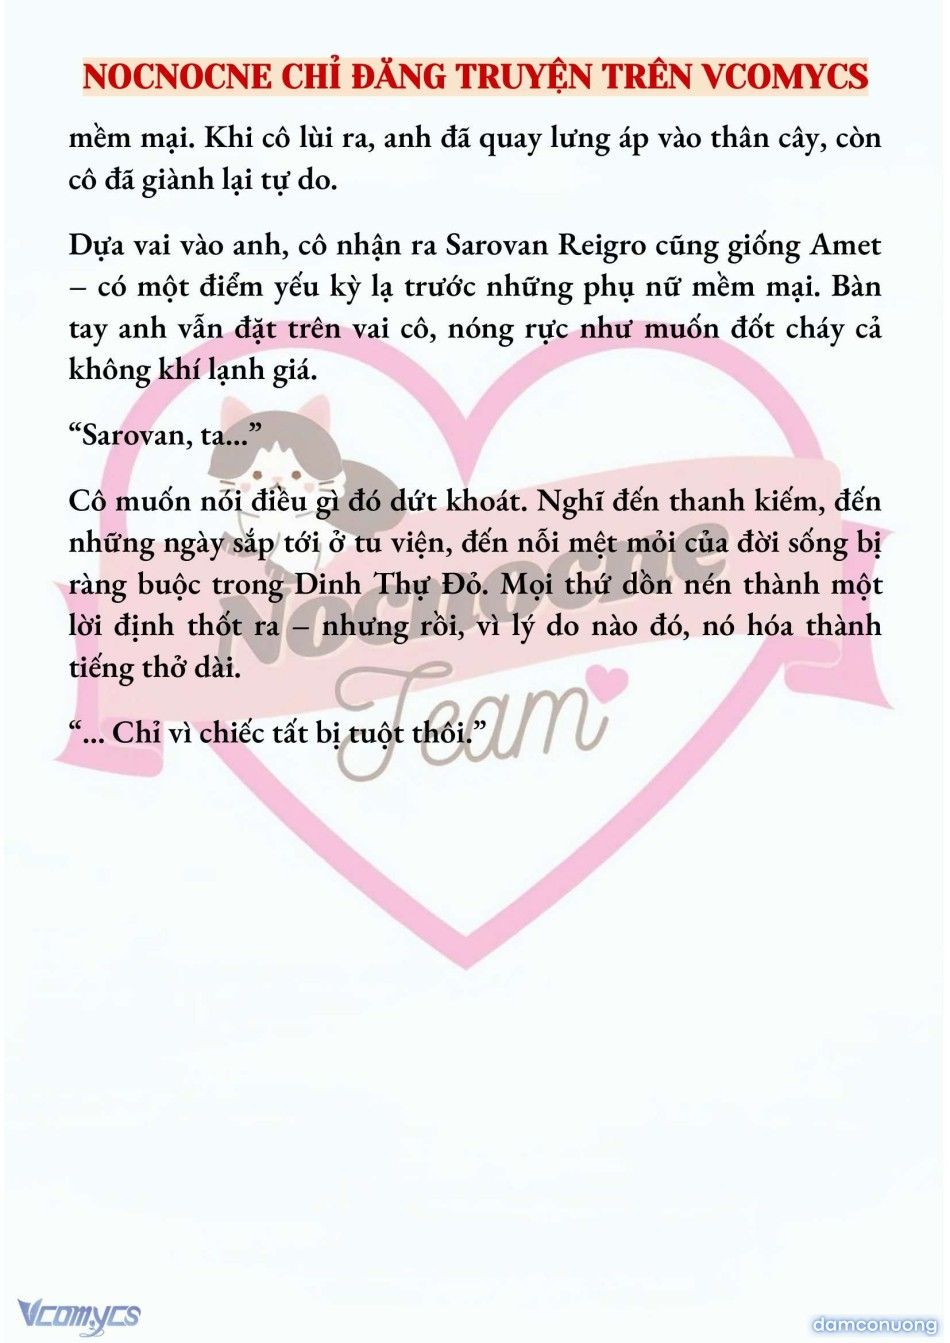 NOCNOCNE CHỈ ĐĂNG TRUYỆN TRÊN VCOMYCS
mềm mại. Khi cô lùi ra, anh đã quay lưng áp vào thân cây, còn
cô đã giành lại tự do.
Dựa vai vào anh, cô nhận ra Sarovan Reigro cũng giống Amet
– có một điểm yếu kỳ lạ trước những phụ nữ mềm mại. Bàn
tay anh vẫn đặt trên vai cô, nóng rực như muốn đốt cháy cả
không khí lạnh giá.
“Sarovan, ta...”
Cô muốn nói điều gì đó dứt khoát. Nghĩ đến thanh kiếm, đến
những ngày sắp tới ở tu viện, đến nỗi mệt mỏi của đời sống bị
ràng buộc trong Dinh Thự Đỏ. Mọi thứ dồn nén thành một
lời định thốt ra – nhưng rồi, vì lý do nào đó, nó hóa thành
tiếng thở dài.
“... Chỉ vì chiếc tất bị tuột thôi.”
Nocnocne
Team
Vcomycs
damconuong